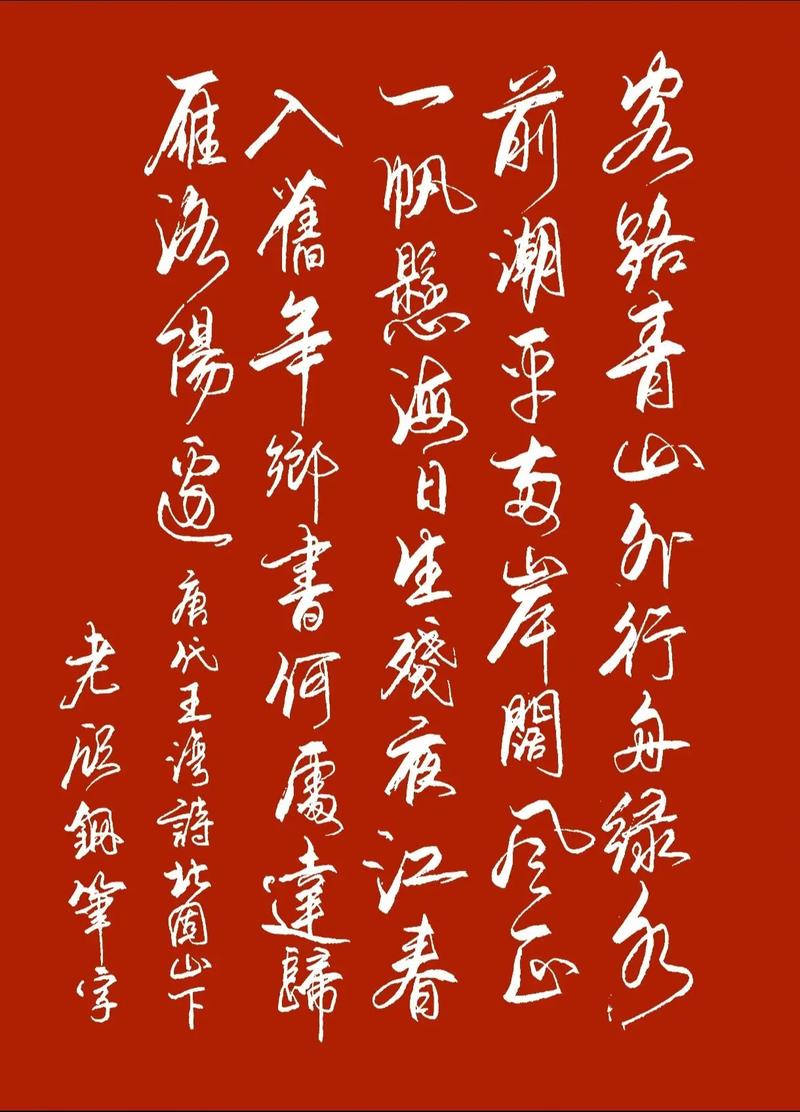 客路青山外行舟绿水
前潮平两岸阔风正
一帆懸海日生殘夜江春
入舊年鄉書何處達歸
雁洛陽邊 唐代王湾詩北固山下
老顾鋼筆字